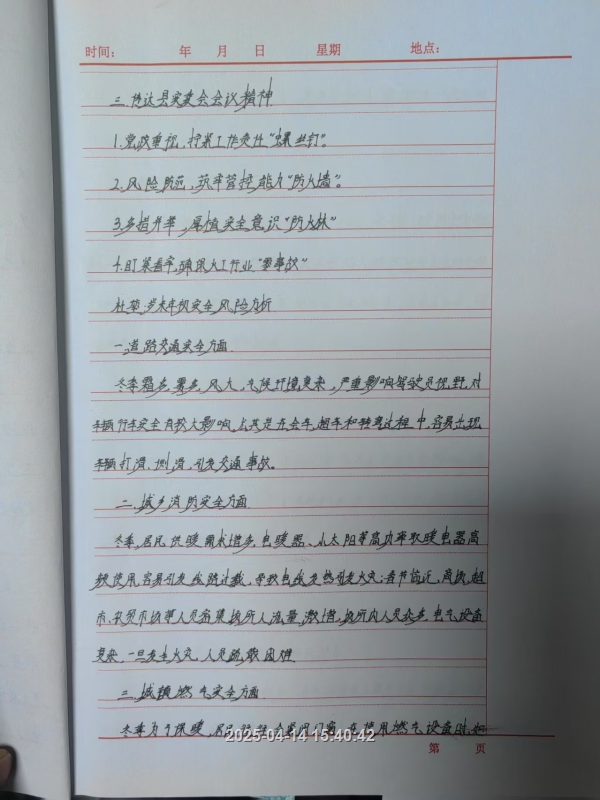 时间: 年 月 日 星期 地点:
三.传达县安委会会议精神
1.党政重视,拧紧工作责任“螺丝钉”。
2.风险防范,筑牢管控能力“防火墙”。
3.多措并举,厚植安全意识“防火林”
4.盯紧看牢,确保人工行业“零事故”
杜 岁末年初安全风险分析
一.道路交通安全方面
冬季霜多,雾多,风大,气候环境复杂,严重影响驾驶员视野,对
车辆行车安全有较大影响,尤其是在会车,超车和转弯过程中,容易出现
车辆打滑,侧滑,引发交通事故。
二.城乡消防安全方面
冬季,居民供暖需求增多,电暖器、小太阳等高功率取暖电器高
频使用,容易引发线路过载,导致电线发热引发火灾;春节临近,商场,超
市,农贸市场等人员密集场所人流量激增,场所内人员众多,电气设备
复杂,一旦发生火灾,人员疏散困难
三.城镇燃气安全方面
冬季为了保暖,居民 会紧闭门窗,在使用燃气设备时,如
2025-04-14 15:40:42
第 页